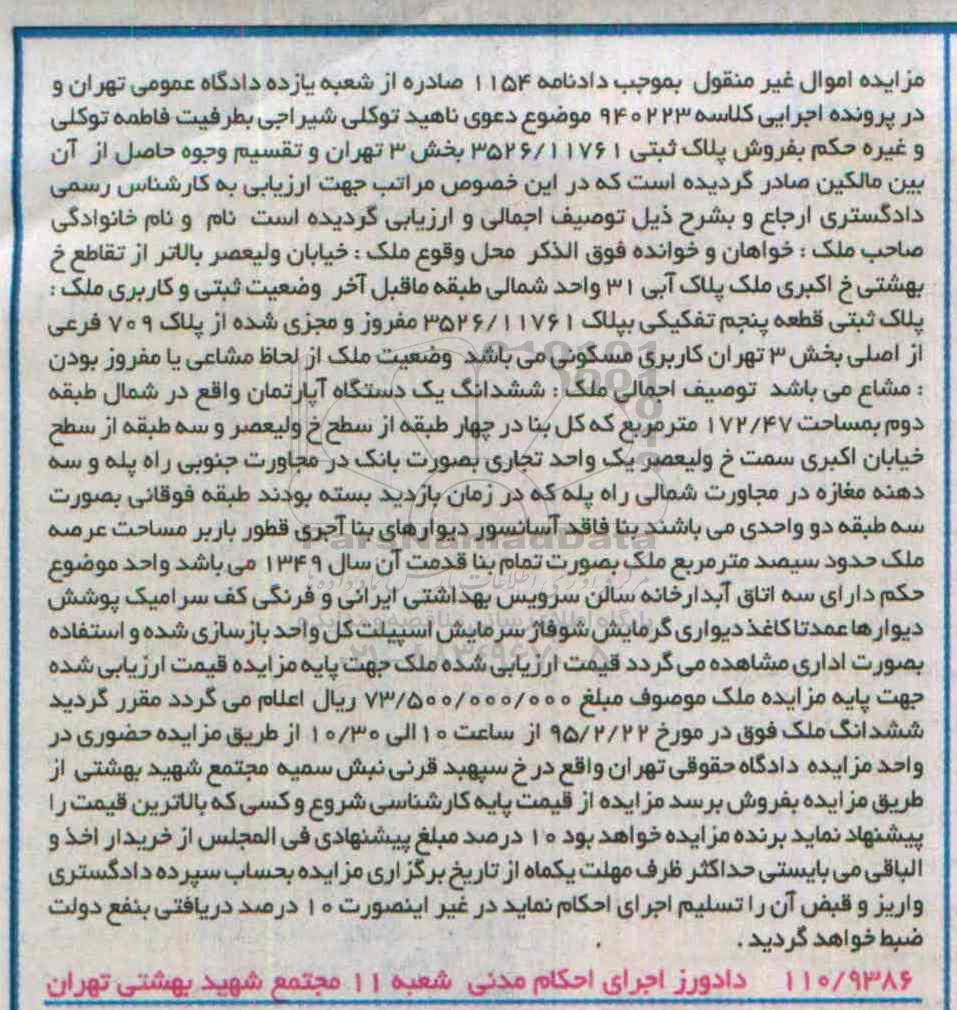 مزایده اموال غیر منقول بموجب دادنامه ۱۱۵۴ صادره از شعبه یازده دادگاه عمومی تهران و
در پرونده اجرایی کلاسه ۹۴۰۲۲۳ موضوع دعوی ناهید توکلی شیراجی بطرفیت فاطمه توکلی
و غیره حکم بفروش پلاک ثبتی ۳۵۲۶/۱۱۷۶۱ بخش ۳ تهران و تقسیم وجوه حاصل از آن
بین مالکین صادر گردیده است که در این خصوص مراتب جهت ارزیابی به کارشناس رسمی
دادگستری ارجاع و بشرح ذیل توصیف اجمالی و ارزیابی گردیده است نام و نام خانوادگی
صاحب ملک : خواهان و خوانده فوق الذکر محل وقوع ملک : خیابان ولیعصر بالاتر از تقاطع خ
بهشتی خ اکبری ملک پلاک آبی ۳۱ واحد شمالی طبقه ماقبل آخر وضعیت ثبتی و کاربری ملک :
پلاک ثبتی قطعه پنجم تفکیکی بپلاک ۳۵۲۶/۱۱۷۶۱ مفروز و مجزی شده از پلاک ۷۰۹ فرعی
از اصلی بخش ۳ تهران کاربری مسکونی می باشد وضعیت ملک از لحاظ مشاعی یا مفروز بودن
: مشاع می باشد توصیف اجمالی ملک : ششدانگ یک دستگاه آپارتمان واقع در شمال طبقه
دوم بمساحت ۱۷۲/۴۷ مترمربع که کل بنا در چهار طبقه از سطح خ ولیعصر و سه طبقه از سطح
خیابان اکبری سمت خ ولیعصر یک واحد تجاری بصورت بانک در مجاورت جنوبی راه پله و سه
دهنه مغازه در مجاورت شمالی راه پله که در زمان بازدید بسته بودند طبقه فوقانی بصورت
سه طبقه دو واحدی می باشند بنا فاقد آسانسور دیوارهای بنا آجری قطور باربر مساحت عرصه
ملک حدود سیصد مترمربع ملک بصورت تمام بنا قدمت آن سال ۱۳۴۹ می باشد واحد موضوع
حکم دارای سه اتاق آبدارخانه سالن سرویس بهداشتی ایرانی و فرنگی کف سرامیک پوشش
دیوارها عمدتا کاغذ دیواری گرمایش شوفاژ سرمایش اسپیلت کل واحد بازسازی شده و استفاده
بصورت اداری مشاهده می گردد قیمت ارزیابی شده ملک جهت پایه مزایده قیمت ارزیابی شده
جهت پایه مزایده ملک موصوف مبلغ ۷۳/۵۰۰/۰۰۰/۰۰۰ ریال اعلام می گردد مقرر گردید
ششدانگ ملک فوق در مورخ ۹۵/۲/۲۲ از ساعت ۱۰ الی ۱۰/۳۰ از طریق مزایده حضوری در
واحد مزایده دادگاه حقوقی تهران واقع در خ سپهبد قرنی نبش سمیه مجتمع شهید بهشتی از
طریق مزایده بفروش برسد مزایده از قیمت پایه کارشناسی شروع و کسی که بالاترین قیمت را
پیشنهاد نماید برنده مزایده خواهد بود ۱۰ درصد مبلغ پیشنهادی فی المجلس از خریدار اخذ و
الباقی می بایستی حداکثر ظرف مهلت یکماه از تاریخ برگزاری مزایده بحساب سپرده دادگستری
واریز و قبض آن را تسلیم اجرای احکام نماید در غیر اینصورت ۱۰ درصد دریافتی بنفع دولت
ضبط خواهد گردید .
۱۱۰/۹۳۸۶ دادورز اجرای احکام مدنی شعبه ۱۱ مجتمع شهید بهشتی تهران